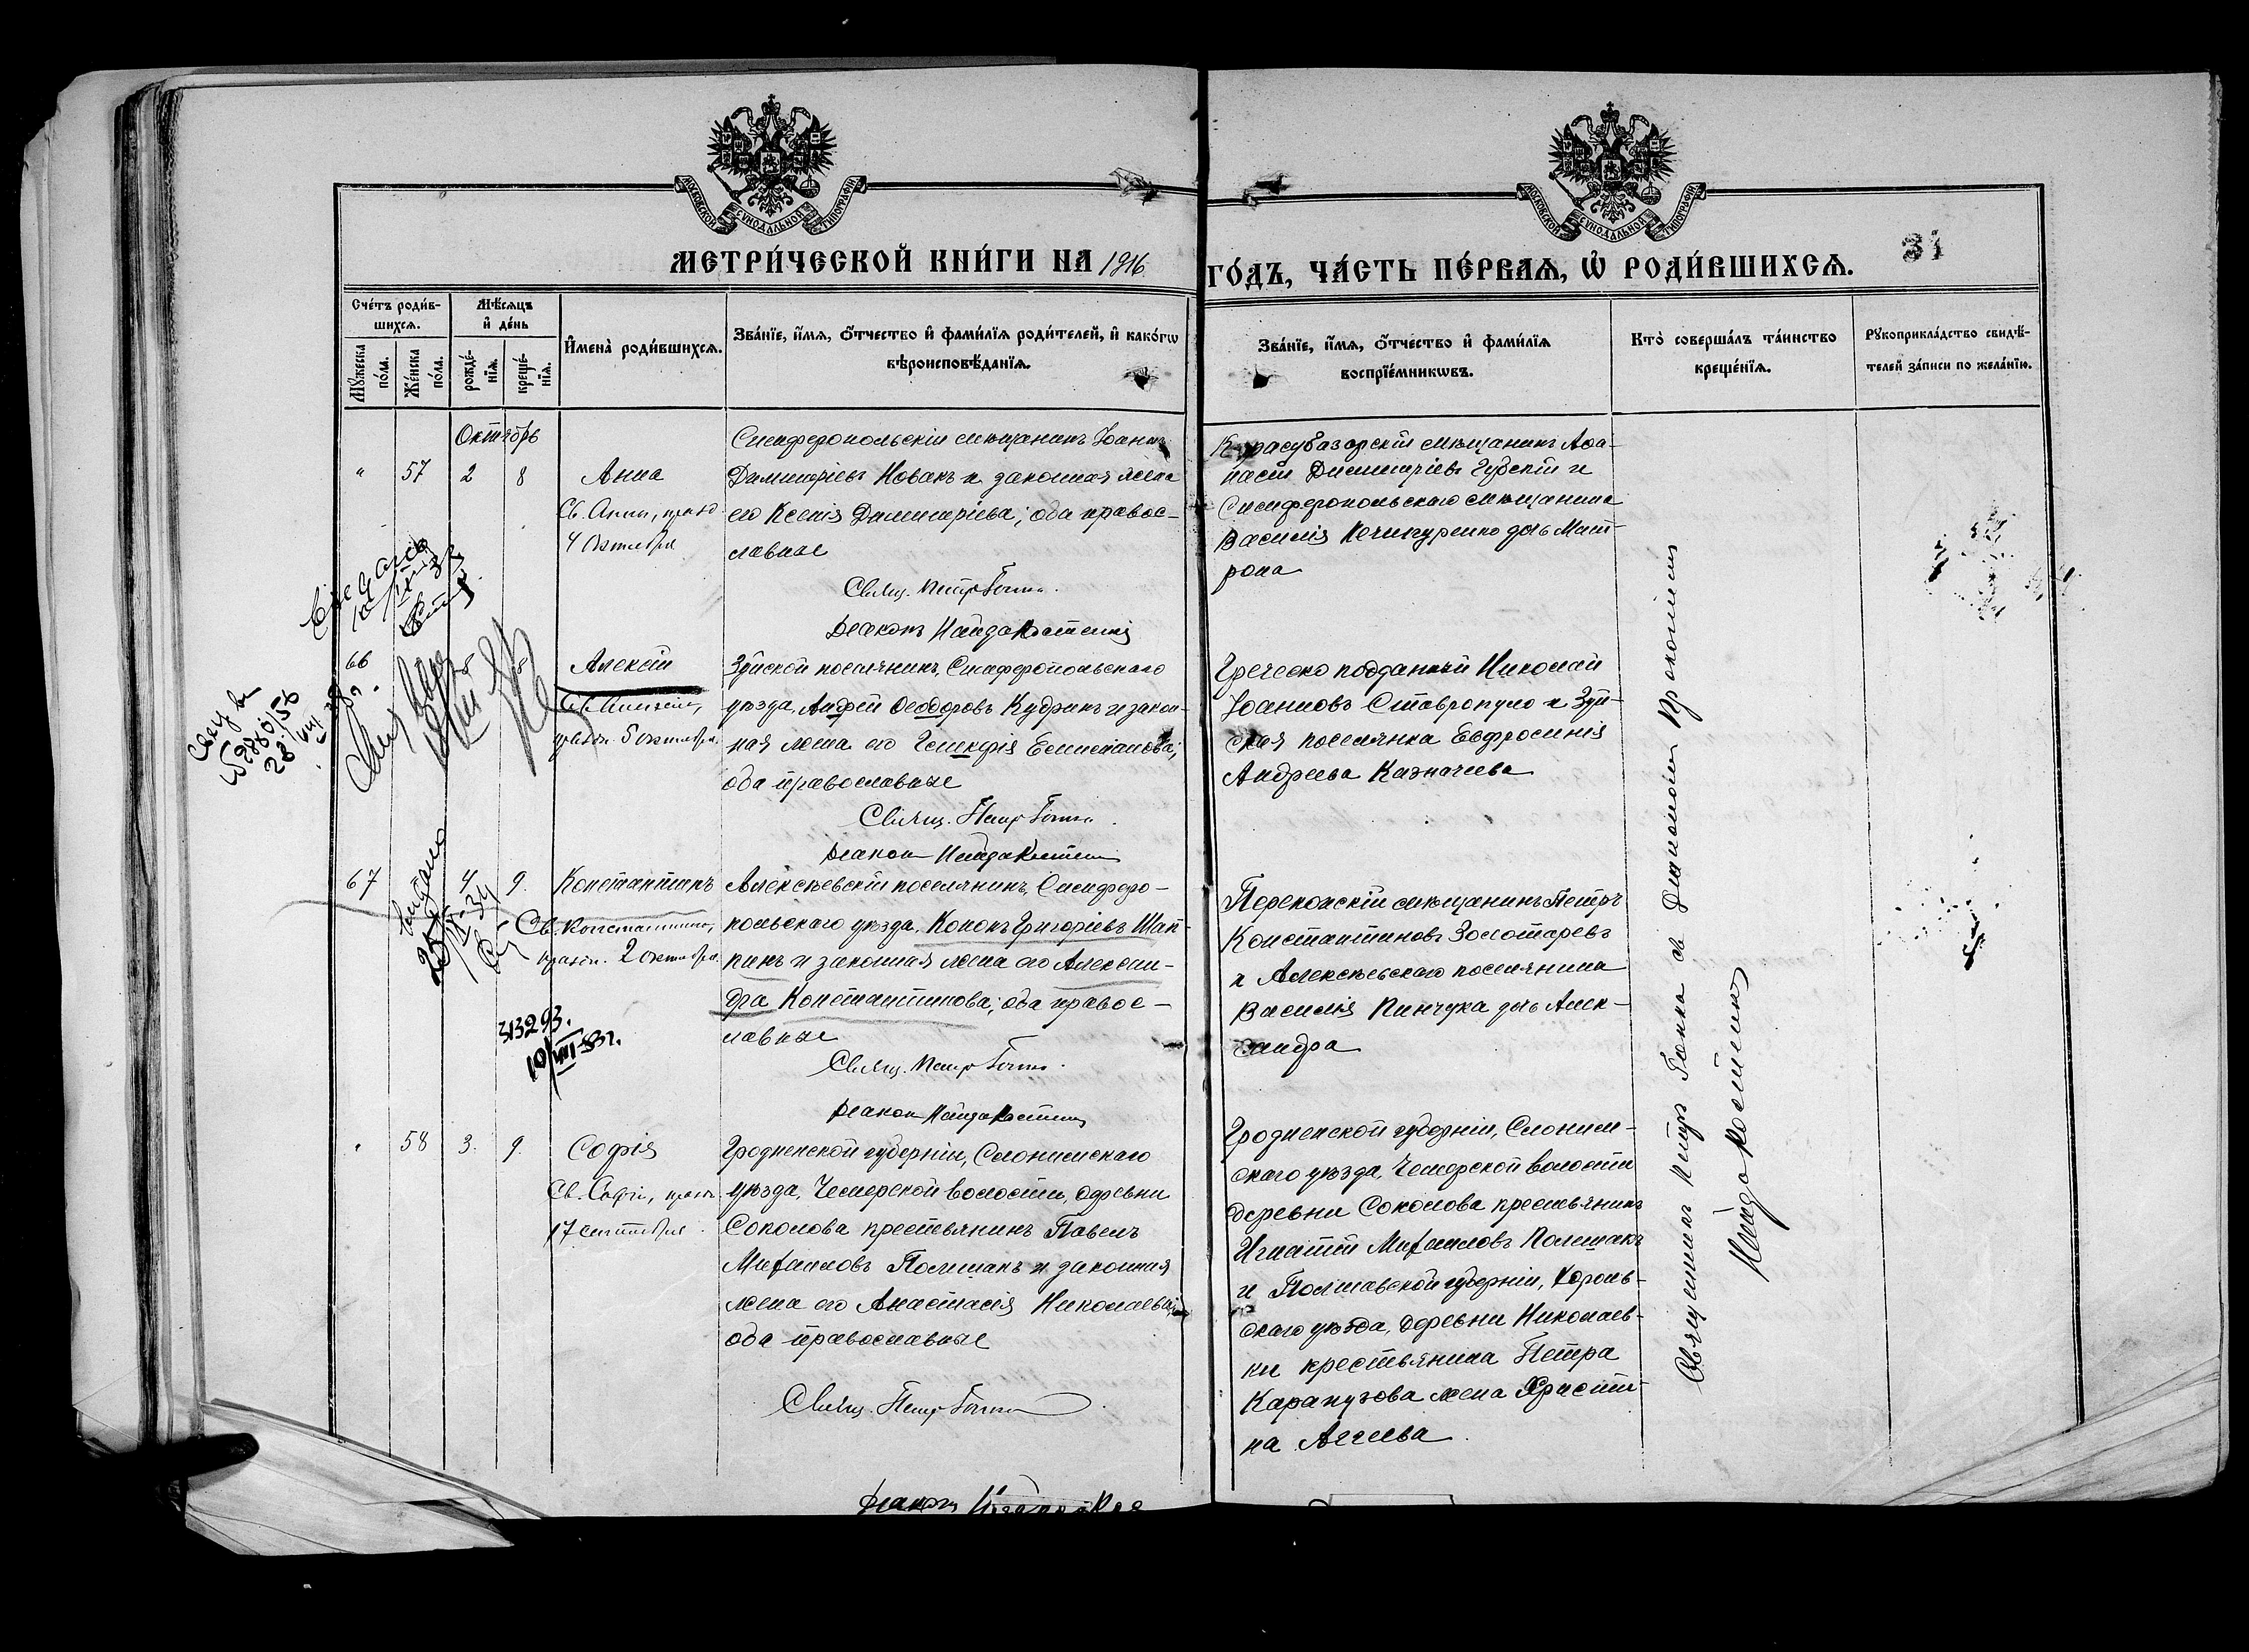 МОСКОВСКОЙ СУНОДАЛЬНОЙ ТИПОГРАФІИ
МОСКОВСКОЙ СУНОДАЛЬНОЙ ТИПОГРАФІИ
МЕТРИ́ЧЕСКОЙ КНИ́ГИ НА 1916
ГО́ДЪ, ЧА́СТЬ ПЕ́РВАѦ, Ѡ҆ РОДИ́ВШИХСѦ.
31
Сче́тъ роди́в-
шихсѧ.
Мѣ́сѧцъ
и҆ де́нь
Мꙋ́жеска
по́ла.
Же́нска
по́ла.
рожде́-
нїѧ.
креще́-
нїѧ.
И҆мена̀ роди́вшихсѧ.
Зва́нїе, и҆́мѧ, ѻ҆́тчество и҆ фами́лїѧ роди́телей, и҆ како́гѡ
вѣроисповѣ́данїѧ.
Зва́нїе, и҆́мѧ, ѻ҆́тчество и҆ фами́лїѧ
воспрїе́мникѡвъ.
Кто̀ соверша́лъ та́инство
креще́нїѧ.
Рꙋкоприкла́дство свидѣ́-
телей за́писи по жела́нїю.
Октябрь
" 57 2 8
Анна
Св. Анны, празд.
4 Октября
Симферопольскій мѣщанинъ Іоаннъ
Димитріевъ Новакъ и законная жена
его Ксенія Димитріева; оба правос-
лавные
Свящ. Петръ
Діаконъ Найда Костенко
Карасубазарскій мѣщанинъ Аѳа-
насій Димитріевъ Губскій и
Симферопольскаго мѣщанина
Василія дочь Мат-
рона
66
Алексій
Св. Алексія,
празд. 5 октября.
Зуйской поселянинъ, Симферопольскаго
уѣзда, Андрей Ѳеодоровъ Кудринъ и закон-
ная жена его Гликерія
оба православные
Свящ. Петръ
Діаконъ Найда Костенко
Греческо подданный Николай
Іоанновъ Ставропуло и Зуй-
ская поселянка Евфросинія
Андреева Казначеева
67 4 9.
Константинъ
Св. Константина,
празд. 2 октября.
Алексѣевскій поселянинъ, Симферо-
польскаго уѣзда, Кононъ Григорьевъ Шап-
кинъ и законная жена его Алексан-
дра Константинова; оба правос-
лавные
Свящ. Петръ
Діаконъ Найда Костенко
Перекопскій мѣщанинъ Петръ
Константиновъ Золотаревъ
и Алексѣевскаго поселянина
Василія Пинчука дочь Алек-
сандра
313293.
58 3. 9.
Софія
Св. Софіи, празд.
17 сентября
Гродненской губерніи, Слонимскаго
уѣзда, Чемерской волости, деревни
Соколова крестьянинъ Павелъ
Михаиловъ Полещакъ и законная
жена его Анастасія Николаева;
оба православные
Свящ. Петръ
Діаконъ
Гродненской губерніи, Слоним-
скаго уѣзда, Чемерской волости
деревни Соколова крестьянинъ
Игнатій Михаиловъ Полещакъ
и Полтавской губерніи, Хороль-
скаго уѣзда, деревни Николаев-
ки крестьянина Петра
Карапузова жена Христи-
на Агеева
Священникъ Петръ съ Діакономъ Прокопіемъ
Найда Костенко